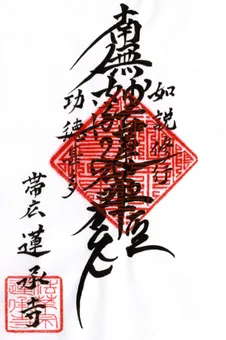 如説修行
南無妙法蓮華経
功徳甚多
帯広 蓮承寺